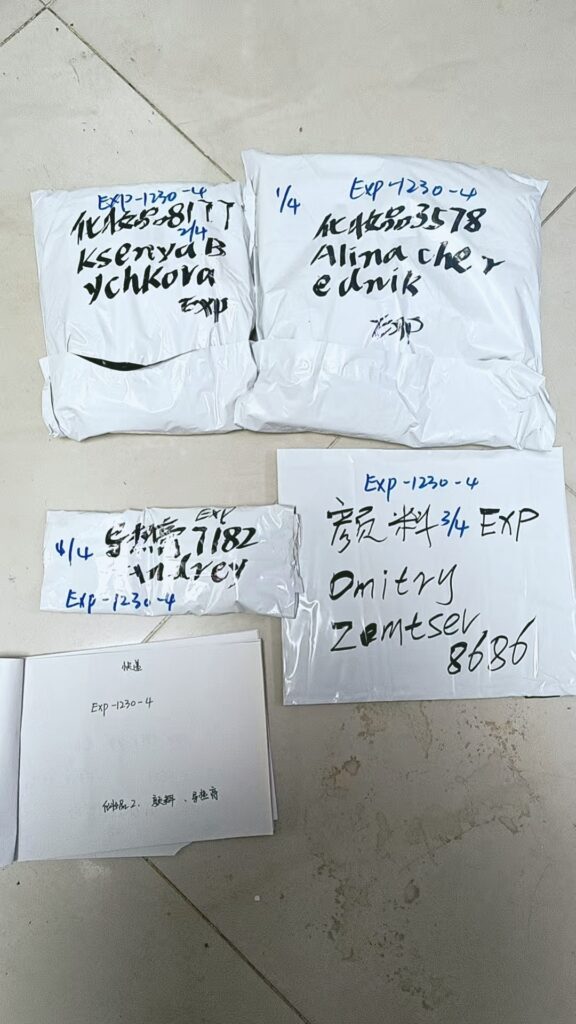 Exp-1230-4
化妆品8177
2/4
Ksenya B
ychkova
Exp
1/4
Exp-1230-4
化妆品3578
Alina cher
ednik
Exp
Exp
4/4 导热膏7182
Andrey
Exp-1230-4
Exp-1230-4
颜料 3/4 EXP
Dmitry
Zemtsev
8686
快递
Exp-1230-4
化妆品2、颜料、导热膏